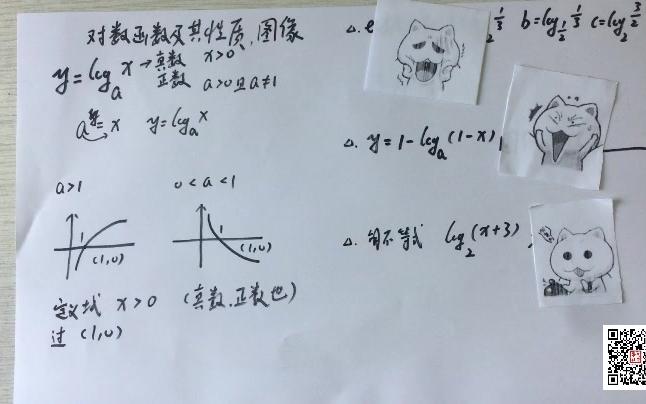 对数函数及其性质,图像
y=log_a x → 真数 x>0
正数 a>0且a≠1
a^y=x y=log_a x
a>1
0<a<1
1
(1,0)
1
(1,0)
定义域 x>0 (真数,正数也)
过 (1,0)
△. 1/3 b=log_{1/2} 1/3 c=log_2 3/2
△. y=1-log_a (1-x)
△. 不等式 log_2 (x+3)